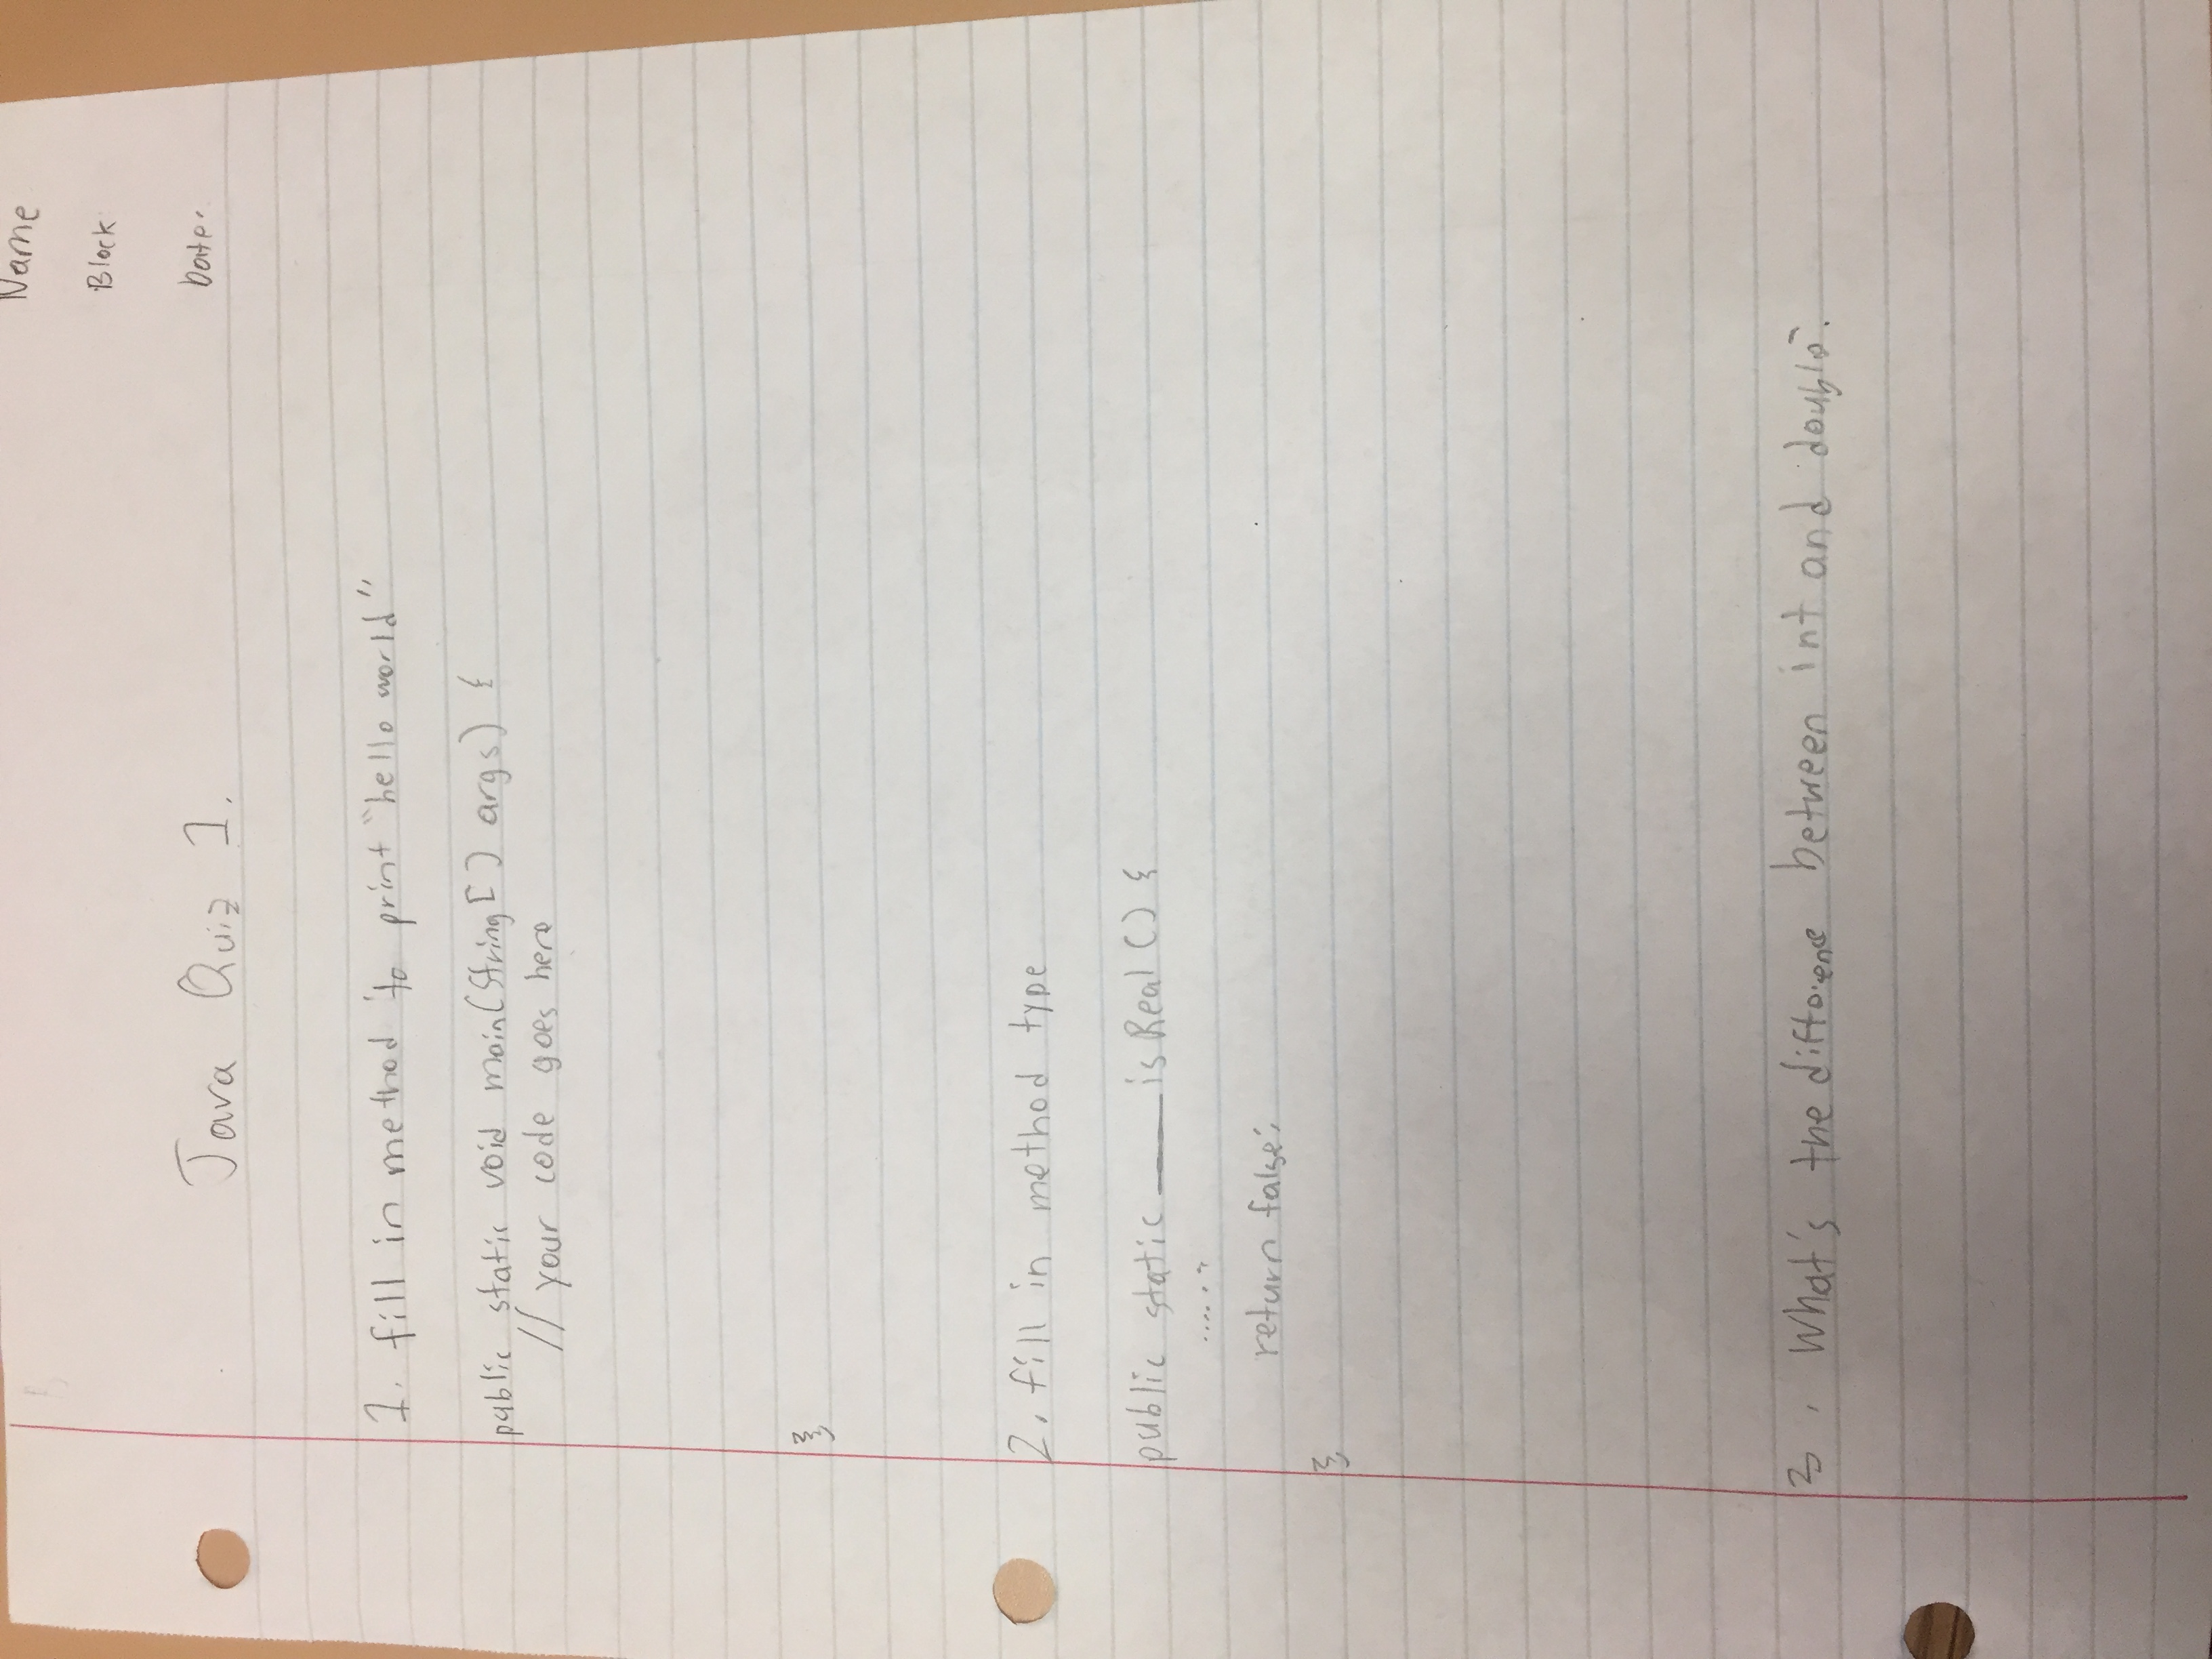 Name
Block
Date.
Java Quiz 1.
1. fill in method to print "hello world"
public static void main(String[] args) {
// your code goes here
}
2. fill in method type
public static ____ isReal() {
......
return false;
}
3. What's the difference between int and double?